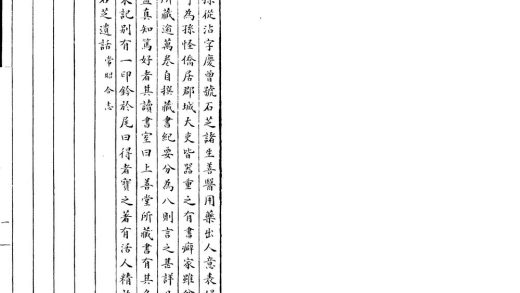 孫從沾字慶曾號石芝諸生善醫用藥出人意表
為孫怪僑居郡城大吏皆器重之有書癖家雖
所藏逾萬卷自撰藏書紀要分為八則言之甚詳
真知篤好者其讀書室曰上善堂所藏書有其名
記別有一印鈐於尾曰得者寶之著有活人精
石芝遺話常昭合志
一